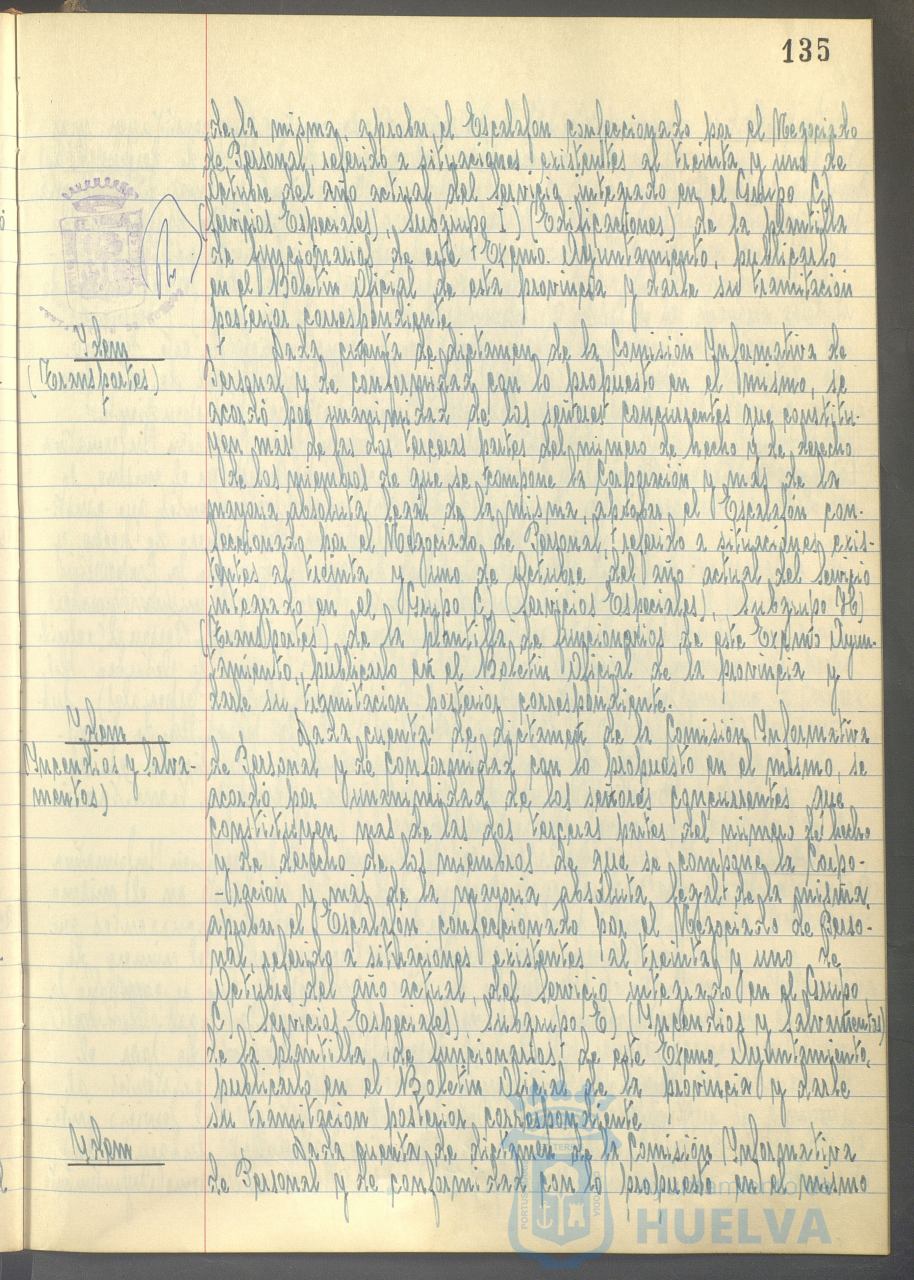 135
de la misma, aprobar el Escalafón confeccionado por el Negociado
de Personal, referido a situaciones existentes al treinta y uno de
Octubre del año actual del Servicio integrado en el Grupo C)
(Servicios Especiales), Subgrupo I) (Edificaciones) de la plantilla
de funcionarios de este Excmo. Ayuntamiento, publicarlo
en el Boletín Oficial de esta provincia y darle su tramitación
posterior correspondiente.
Idem
(Transportes)
Dada cuenta de dictamen de la Comisión Informativa de
Personal y de conformidad con lo propuesto en el mismo, se
acordó por unanimidad de los señores concurrentes que constitu-
yen más de las dos terceras partes del número de hecho y de derecho
de los miembros de que se compone la Corporación y más de la
mayoría absoluta legal de la misma, aprobar el Escalafón con-
feccionado por el Negociado de Personal, referido a situaciones exis-
tentes al treinta y uno de Octubre del año actual del Servicio
integrado en el Grupo C) (Servicios Especiales), Subgrupo
(Transportes) de la plantilla de funcionarios de este Excmo Ayun-
tamiento, publicarlo en el Boletín Oficial de la provincia y
darle su tramitación posterior correspondiente.
Idem
Incendios y Salva-
mentos)
Dada cuenta de dictamen de la Comisión Informativa
de Personal y de conformidad con lo propuesto en el mismo, se
acordó por unanimidad de los señores concurrentes que
constituyen mas de las dos terceras partes del número de hecho
y de derecho de los miembros de que se compone la Corpo-
-ración y más de la mayoría absoluta legal de la misma
aprobar el Escalafón confeccionado por el Negociado de Perso-
nal, referido a situaciones existentes al treinta y uno de
Octubre del año actual, del Servicio integrado en el Grupo
C) (Servicios Especiales), Subgrupo E) (Incendios y Salvamentos)
de la plantilla de funcionarios de este Excmo Ayuntamiento,
publicarlo en el Boletín Oficial de la provincia y darle
su tramitación posterior correspondiente
Idem
Dada cuenta de dictamen de la Comisión Informativa
de Personal y de conformidad con lo propuesto en el mismo
HUELVA